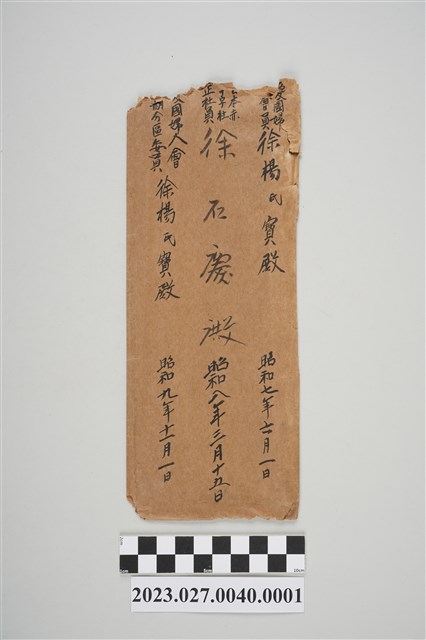 愛国婦人會員 徐楊氏寶殿 昭和七年六月一日
日本赤十字社正社員 徐石慶殿 昭和八年三月十五日
國婦人會 分區委員 徐楊氏寶殿 昭和九年十一月一日
2023.027.0040.0001